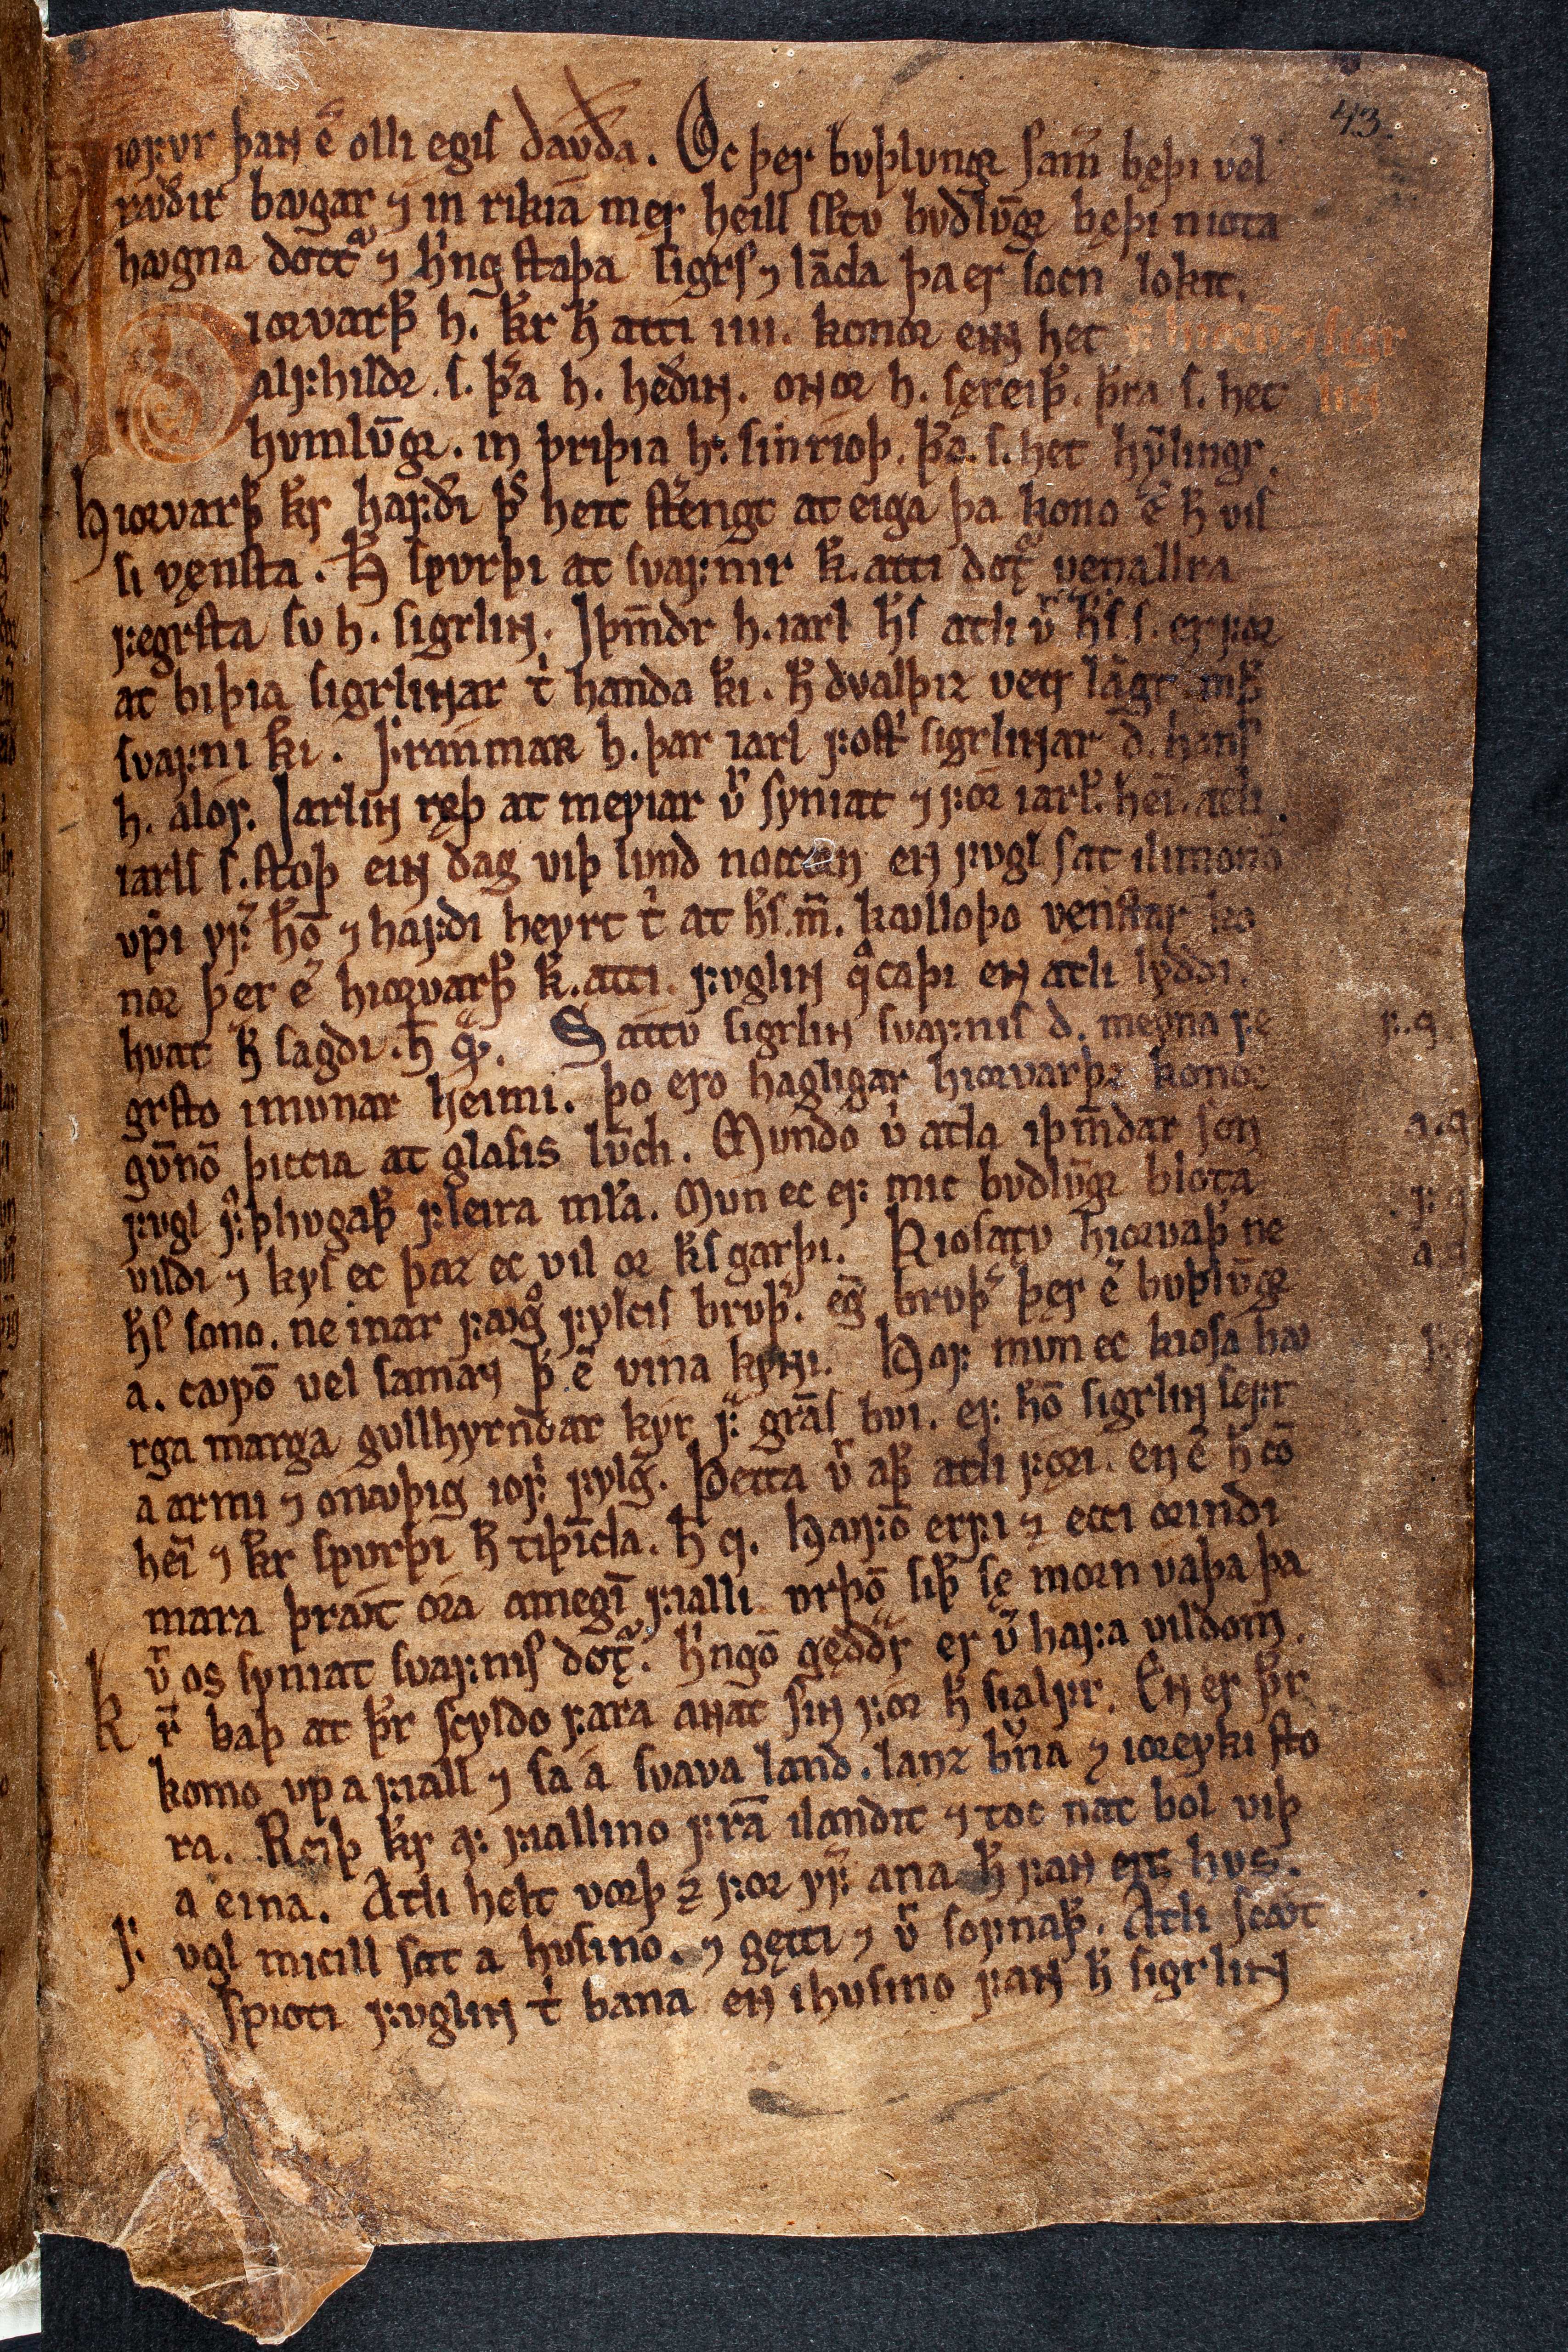 43
iofur þaɴ e᷒ olli ęgis davða. Oc þer buþlungr sam̅ beþi vel
ravðir bavgar ⁊ in rikia mer heill scltu budlūgr bęþi niota
havgna dottͬ ⁊ h̓ngstaþa sigrs ⁊ lāda þa er socn lokit.
Iorvarþ h. kr h̅ atti iiii. konor ein het fͬ hiorv̅ ⁊ sigr
alfhildr. s. þr̅a h. heðiɴ. oɴor h. sereiþ. þr̅a s. het liɴ
humlūgr. in þriþia h. sinrioþ. þr̅a. s. het hymlingr.
Hiorvarþ̅ kr hafði þs̅ heit strengt at eiga þa kono e᷒ h̅ vis
si vęnsta. H̅ spurþi at svafnir k̅. atti dotͬ venallra
fegrsta su h. sigrliɴ. Iþm̅dr h. iarl h̅s atli vͬ h̅s s. er for
at biþia sigrliɴar t̓ handa k̅i. h̅ dvalþiz vetr lāgt mþ̅
svafni k̅i. Franmaʀ h. þar iarl fostr̓ sigrliɴar d. hans
h. alof. Iarliɴ ręþ at meyiar vͬ syniat ⁊ for iarl̅. hei̅. atli
iarls s. stoþ eiɴ dag viþ lund noccorn en fugl sat i limonō
upi yf͛ h̅ō ⁊ hafði heyrt t̓ at h̅s. m̅. kavlloþo vęnstar ko
nor þer e᷒ hiorvarþ̅ k̅. atti. fugliɴ qͣcaþi en atli lyddi.
hvat h̅ sagði. h̅ q̅. Sattu sigrliɴ svafnis d. meyna fe f. q
grsto i munar heimi. þo ero hagligar hiorvarþz konor
gūnō þiccia at glasis lūdi. Mundo v̓ atla iþm̅dar son a. q
fugl fͬþhugaþ̅ fleira mę̅la. Mun ec ef mic budlūgr blota f. q
vildi ⁊ kys ec þaz ec vil or k̅s garþi. Kiosattu hiorvaþ̅ ne a. q
h̅s sono. ne inar favgͬ fylcis bruþ͛. eg̅ bruþ͛ þer e᷒ buþlūgr
a. cavpō vel saman þ̅ e᷒ vina kyɴi. Hof mun ec kiosa hav f. q
rga marga gullhyrndar kyr f͛ gra̅s bui. ef h̅ō sigrliɴ sefr
a armi ⁊ onavþig iof͛ fylg͛. Þetta vͬ aþ̅ atli fori. en e᷒ h̅ cō
hei̅ ⁊ k̅r spurþi h̅ tiþi̅da. h̅ q. Hafō erfi ⁊ ecci ørindi
mara þravt óra a meginfialli urþō siþ̅ sę morn vaþa þa
vͬ os syniat svafnis dotͬ. h̓ngō gęddr er v̓ hafa vildom.
K r̅ baþ at þr̅ scyldo fara aɴat siɴ for h̅ sialfr. En er þr̅
komo up a fiall ⁊ sa a svava land. lanz br̓na ⁊ ioreyki sto
ra. Reiþ k̅r af fiallino fra̅ i landit ⁊ toc nat bol viþ
a eina. Atli helt vorþ ⁊ for yf͛ ana h̅ faɴ eit hus.
F ugl micill sat a husino. ⁊ gętti ⁊ vͬ sofnaþ̅. Atli scavt
spioti fugliɴ t̓ bana en i husino faɴ h̅ sigrliɴ